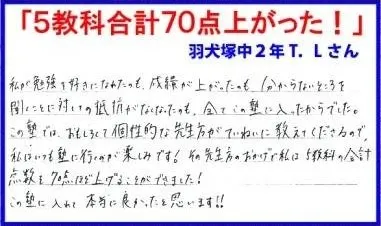 「5教科合計70点上がった！」
羽犬塚中2年T．Lさん
私が勉強を好きになれたのも、成績が上がったのも、1分からないところを
聞くことに対しての抵抗がなくなったのも、全てこの塾に入ったからでした。
この塾では、おもしろくて個性的な先生方がていねいに教えてくださるので、
私はいつも塾に行くのが楽しみです！その先生方のおかげで私は5教科の合計
点数を70点ほど上げることができました！
この塾に入れて本当に良かったと思います!!